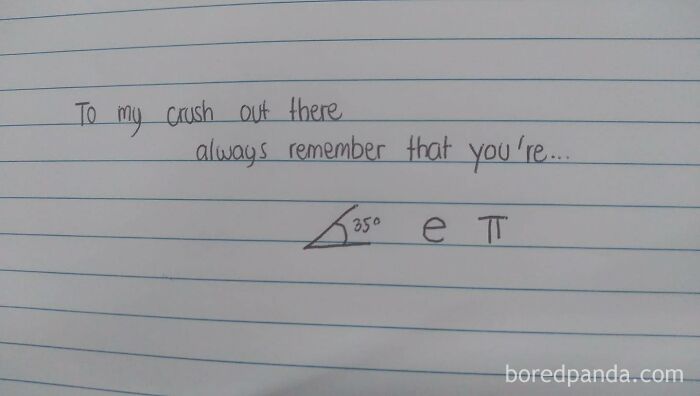 To my crush out there
always remember that you're...
35° e π
boredpanda.com